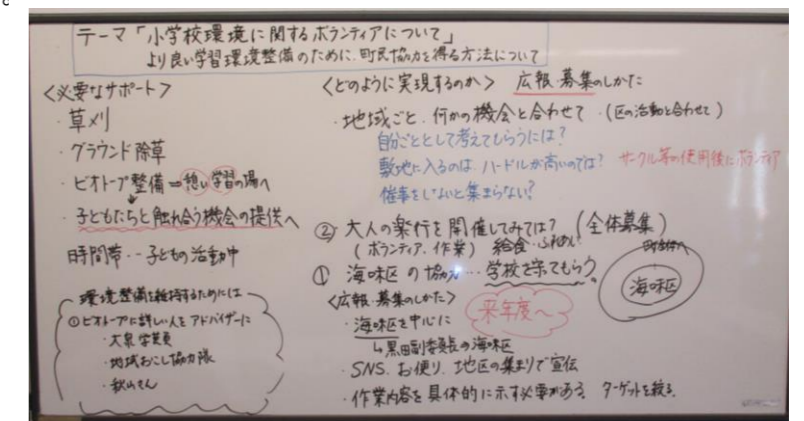 テーマ「小学校環境に関するボランティアについて」
より良い学習環境整備のために、町民協力を得る方法について
<必要なサポート>
・草刈り
・グラウンド除草
・ビオトープ整備⇒憩い学習の場へ
・子どもたちと触れ合う機会の提供へ
時間帯‥子どもの活動中
環境整備を維持するためには
①ビオトープに詳しい人をアドバイザーに
・大泉学芸員
・地域おこし協力隊
・秋山さん
<どのように実現するのか> 広報・募集のしかた
・地域ごと、何かの機会と合わせて・(区の活動と合わせて)
自分ごととして考えてもらうには?
敷地に入るのは、ハードルが高いのでは? サークル等の使用後にボランティア
催事をしないと集まらない?
② 大人の楽行を開催してみては? (全体募集)
(ボランティア、作業) 給食・ふれあい
① 海味区の協力…学校を守てもらう。
海味区
<広報・募集のしかた>
来年度へ
・海味区を中心に
↳黒田副委員長の海味区
・SNS、お便り、地区の集まりで宣伝
・作業内容を具体的に示す必要がある。 ターゲットを絞る。